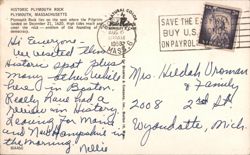 HISTORIC PLYMOUTH ROCK
PLYMOUTH, MASSACHUSETTS
Plymouth Rock lies on the spot where the Pilgrims
landed on December 21, 1620. High tides reach
under the
democracy.
Hi Everyone -
we visited this
Historic spot plus
many others while
here in Boston.
Really have had a
Review in History
Leaving For Maine
and New Hampshire in
the morning
Nellie
SAVE THE E
BUY U.S.
ON PAYROL
Mrs. Hildah Vroman
& Family
2008 2nd St
Wyandotte, Mich.